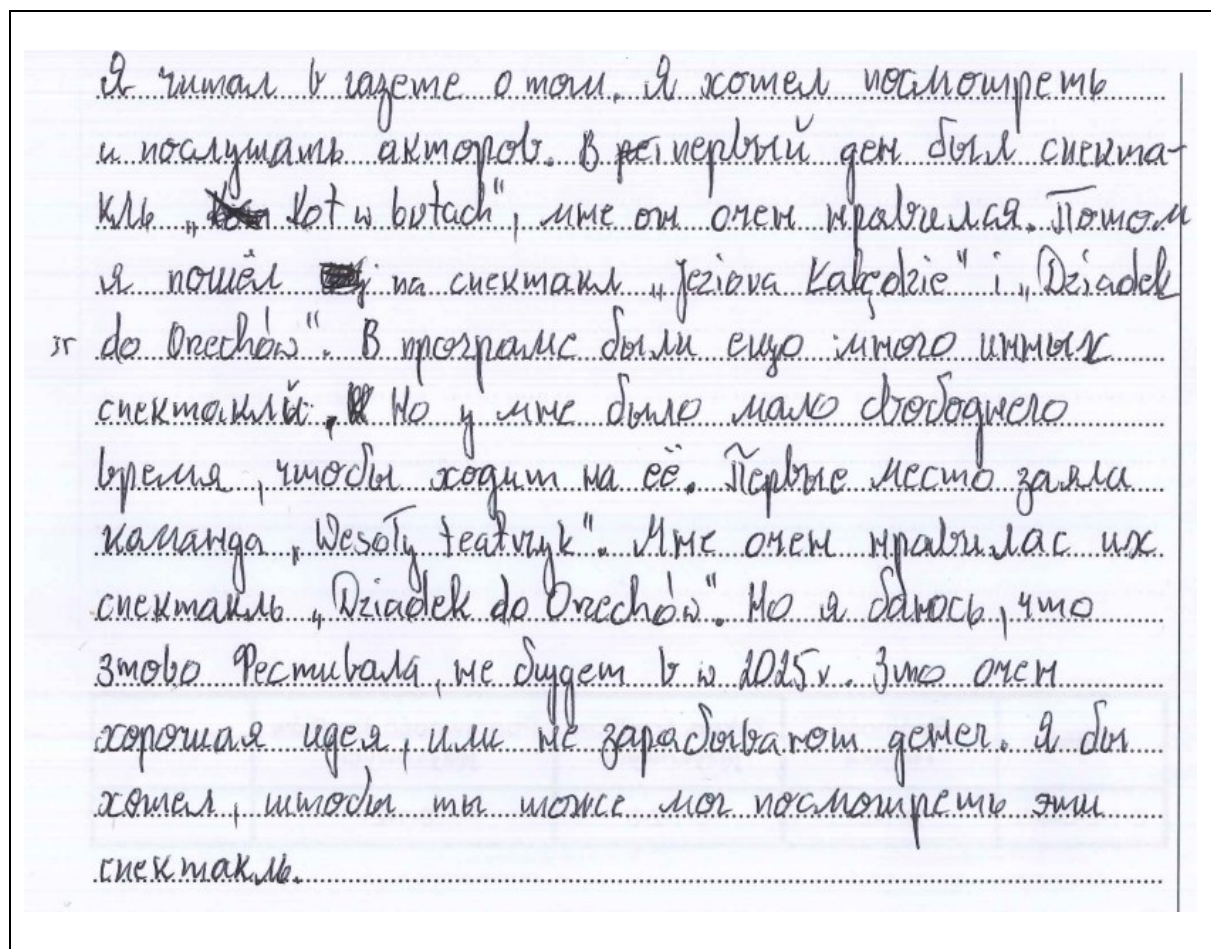 Я читал в газете о том. Я хотел посмотреть
и послушать акторов. В первый ден был спекта-
кль „Kot w butach", мне он очен нравился. Потом
я пошёл на спектакл „Jeziora Kabędzie" i „Dziadek
do Orechów". В програме были ещо много инных
спектаклый. Но у мне было мало свободнего
время, чтобы ходит на её. Первые место заяла
каманда „Wesoły teatrzyk". Мне очен нравилас их
спектакль „Dziadek do Orechów". Но я баюсь, что
этово Фестиваля, не будет в w 2025 r. Это очен
хорошая идея, или не зарабывают денег. Я бы
хотел, штобы ты тоже мог посмотреть эти
спектакль.